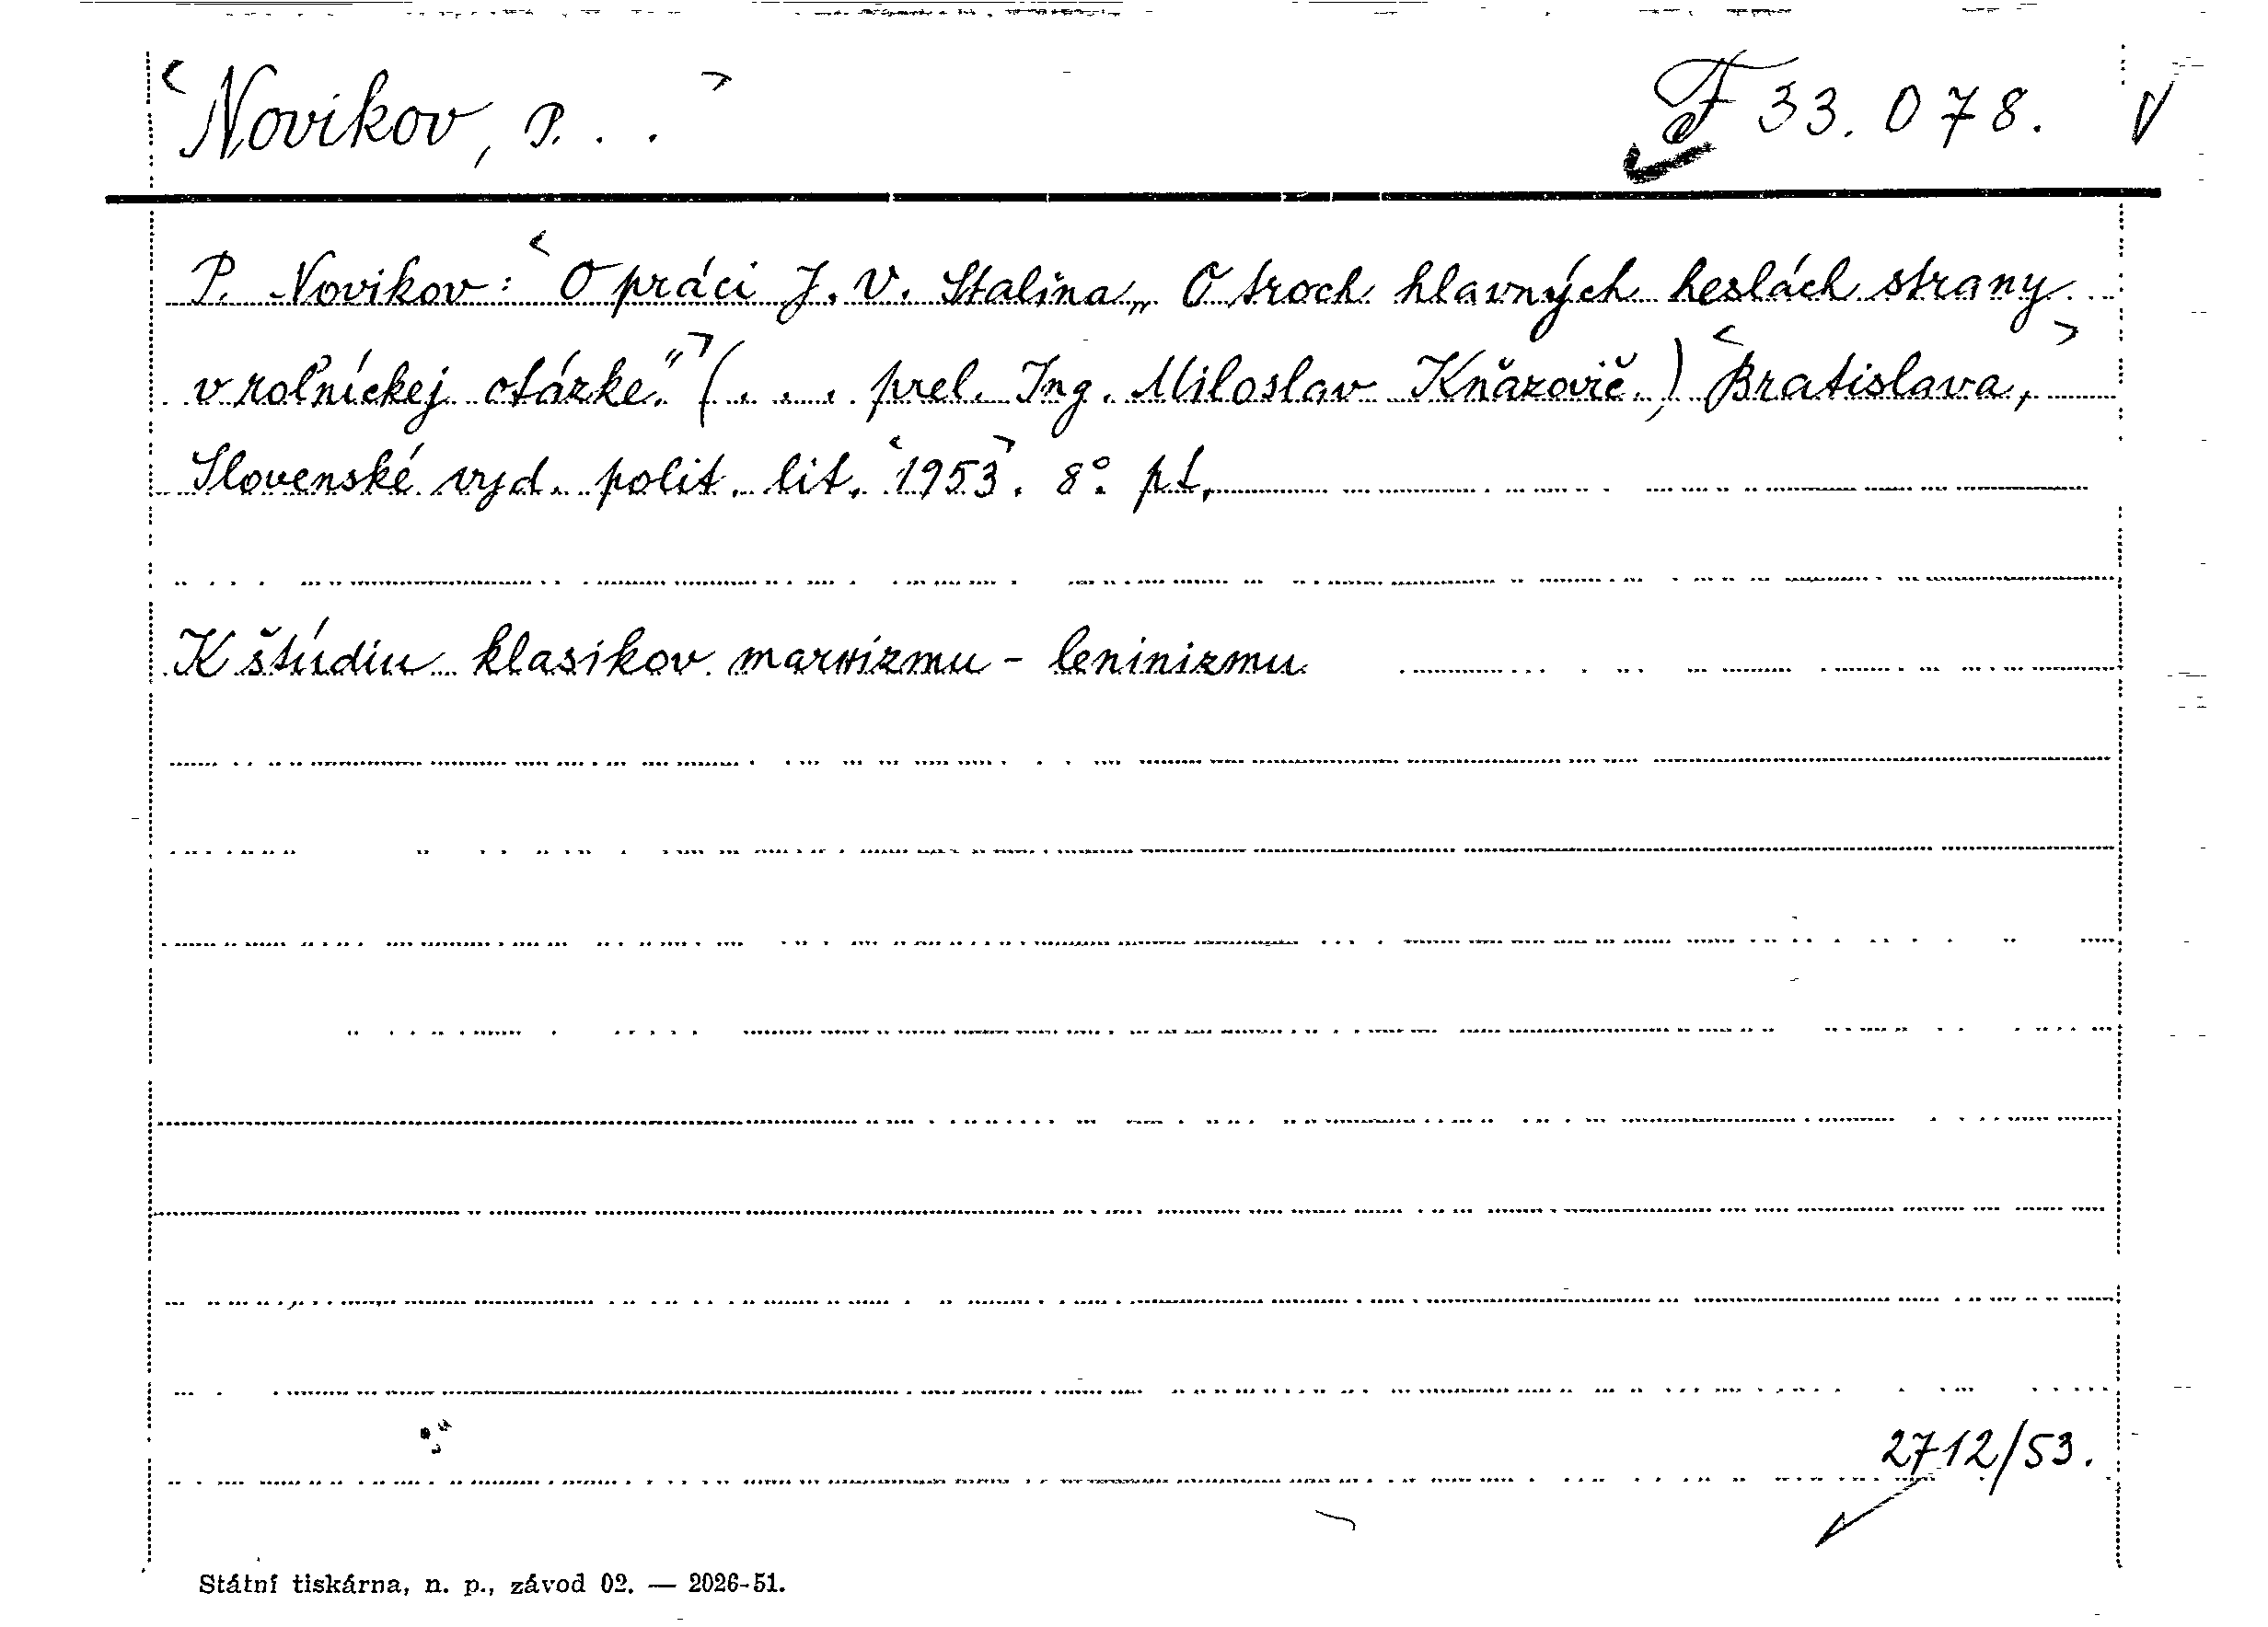 <Novikov, P. . .>
F 33.078.
P. Novikov: <O práci J. V. Stalina „O troch hlavných heslách strany
v roľníckej otázke."> (. . . prel. Ing. Miloslav Kňazovič.) <Bratislava,>
Slovenské vyd. polit. lit. <1953>. 8°. pt.
K štúdiu klasikov marxizmu - leninizmu
2712/53.
Státní tiskárna, n. p., závod 02. — 2026-51.